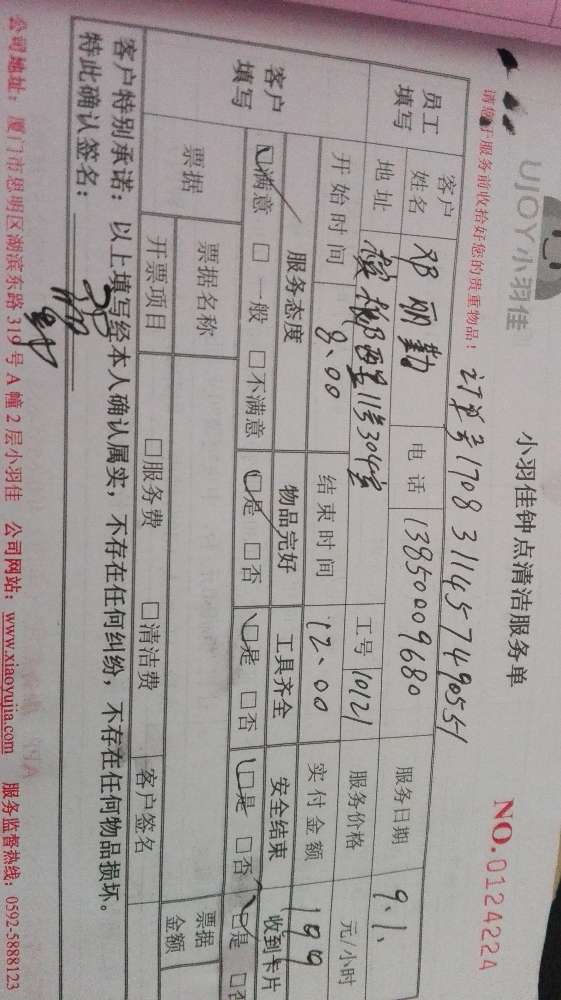 UJOY小羽佳
小羽佳钟点清洁服务单
NO.0124224
请您于服务前收拾好您的贵重物品!
订单号1708311457490551
员工填写
客户姓名
邓丽勤
电话
13950009680
服务日期
9.1.
地址
西里11号304室
工号
10121
服务价格
元/小时
客户填写
开始时间
8:00
结束时间
12:00
实付金额
199
服务态度
物品完好
工具齐全
安全结束
收到卡片
□满意 □一般 □不满意
□是 □否
□是 □否
□是 □否
□是 □否
票据
票据名称
票据金额
开票项目
□服务费 □清洁费
客户签名
客户特别承诺:以上填写经本人确认属实,不存在任何纠纷,不存在任何物品损坏。
特此确认签名:
公司地址:厦门市思明区湖滨东路319号A幢2层小羽佳 公司网站:www.xiaoyujia.com 服务监督热线:0592-5888123